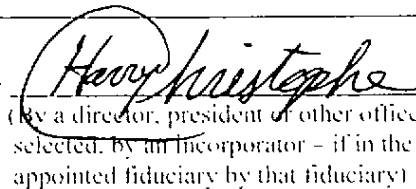 Harry Christophe
(By a director, president or other office
selected, by an incorporator – if in the
appointed fiduciary by that fiduciary)